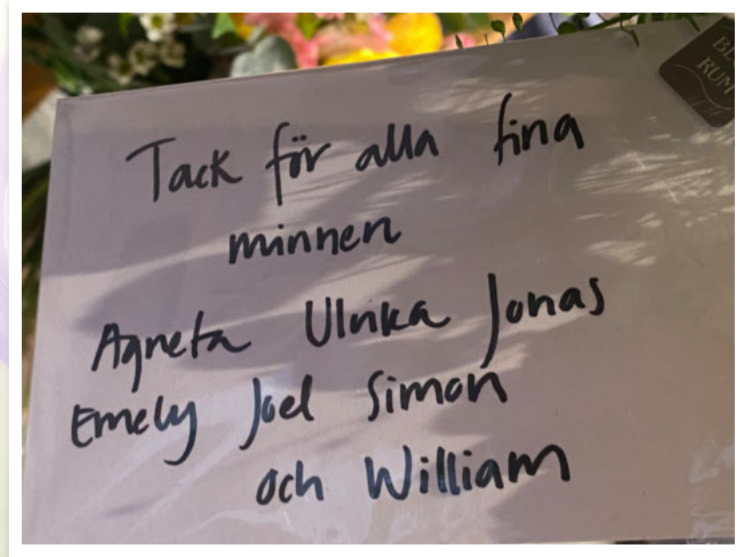 Tack för alla fina
minnen
Agneta Ulrika Jonas
Emely Joel Simon
och William